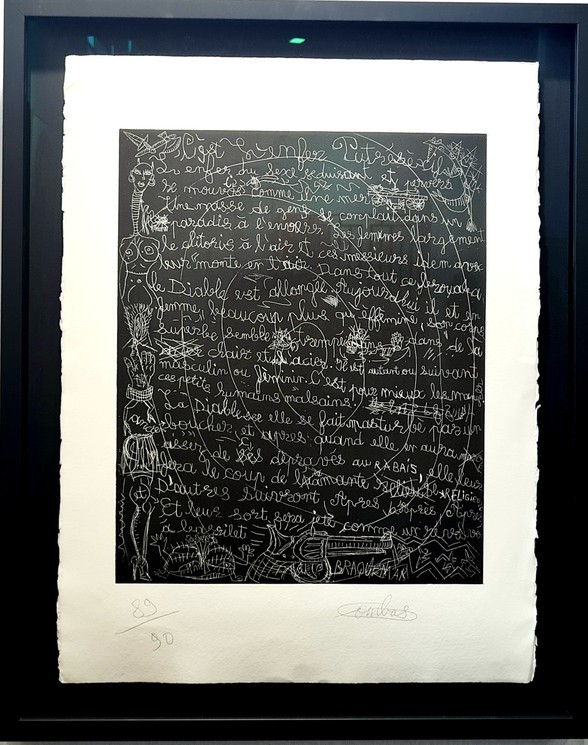 L'enfer
enfer du sexe séduisant et pervers
se mouvoir comme une mer
Une masse de gens se complait dans un
paradis à l'envers, les femmes largement
le clitoris à l'air et ces messieurs idem avec
leur monte en l'air Dans tout ce brouaha
le Diable est allongé Aujourd'hui il est en
femme, beaucoup plus qu'efféminé, son corps
superbe semble trempé dans de la
chair et d'acier. Il est autant ou suivant
masculin ou féminin. C'est pour mieux les
ces petits humains malsains.
La Diablesse elle se fait masturber par un
boucher et après quand elle en aura
assez de ces dépravés au RABAIS, elle leur
fera le coup de l'amante RELIGIEU
D'autres suivront Après Après Après
Et leur sort sera jeté comme un
à
BRAQUEMAR
89
90
Combas